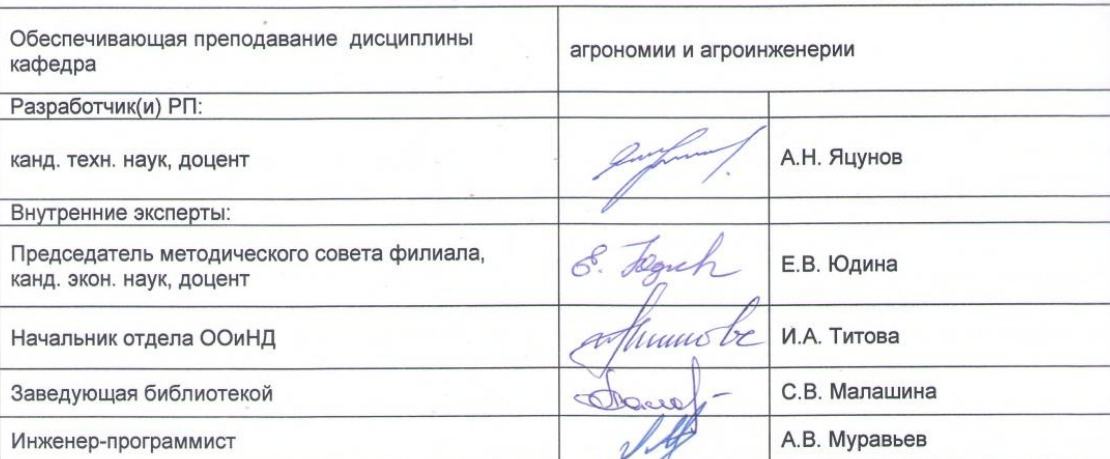 Обеспечивающая преподавание дисциплины
кафедра
агрономии и агроинженерии
Разработчик(и) РП:
канд. техн. наук, доцент
А.Н. Яцунов
Внутренние эксперты:
Председатель методического совета филиала,
канд. экон. наук, доцент
Е. Юдин
Е.В. Юдина
Начальник отдела ООиНД
И.А. Титова
Заведующая библиотекой
С.В. Малашина
Инженер-программист
А.В. Муравьев